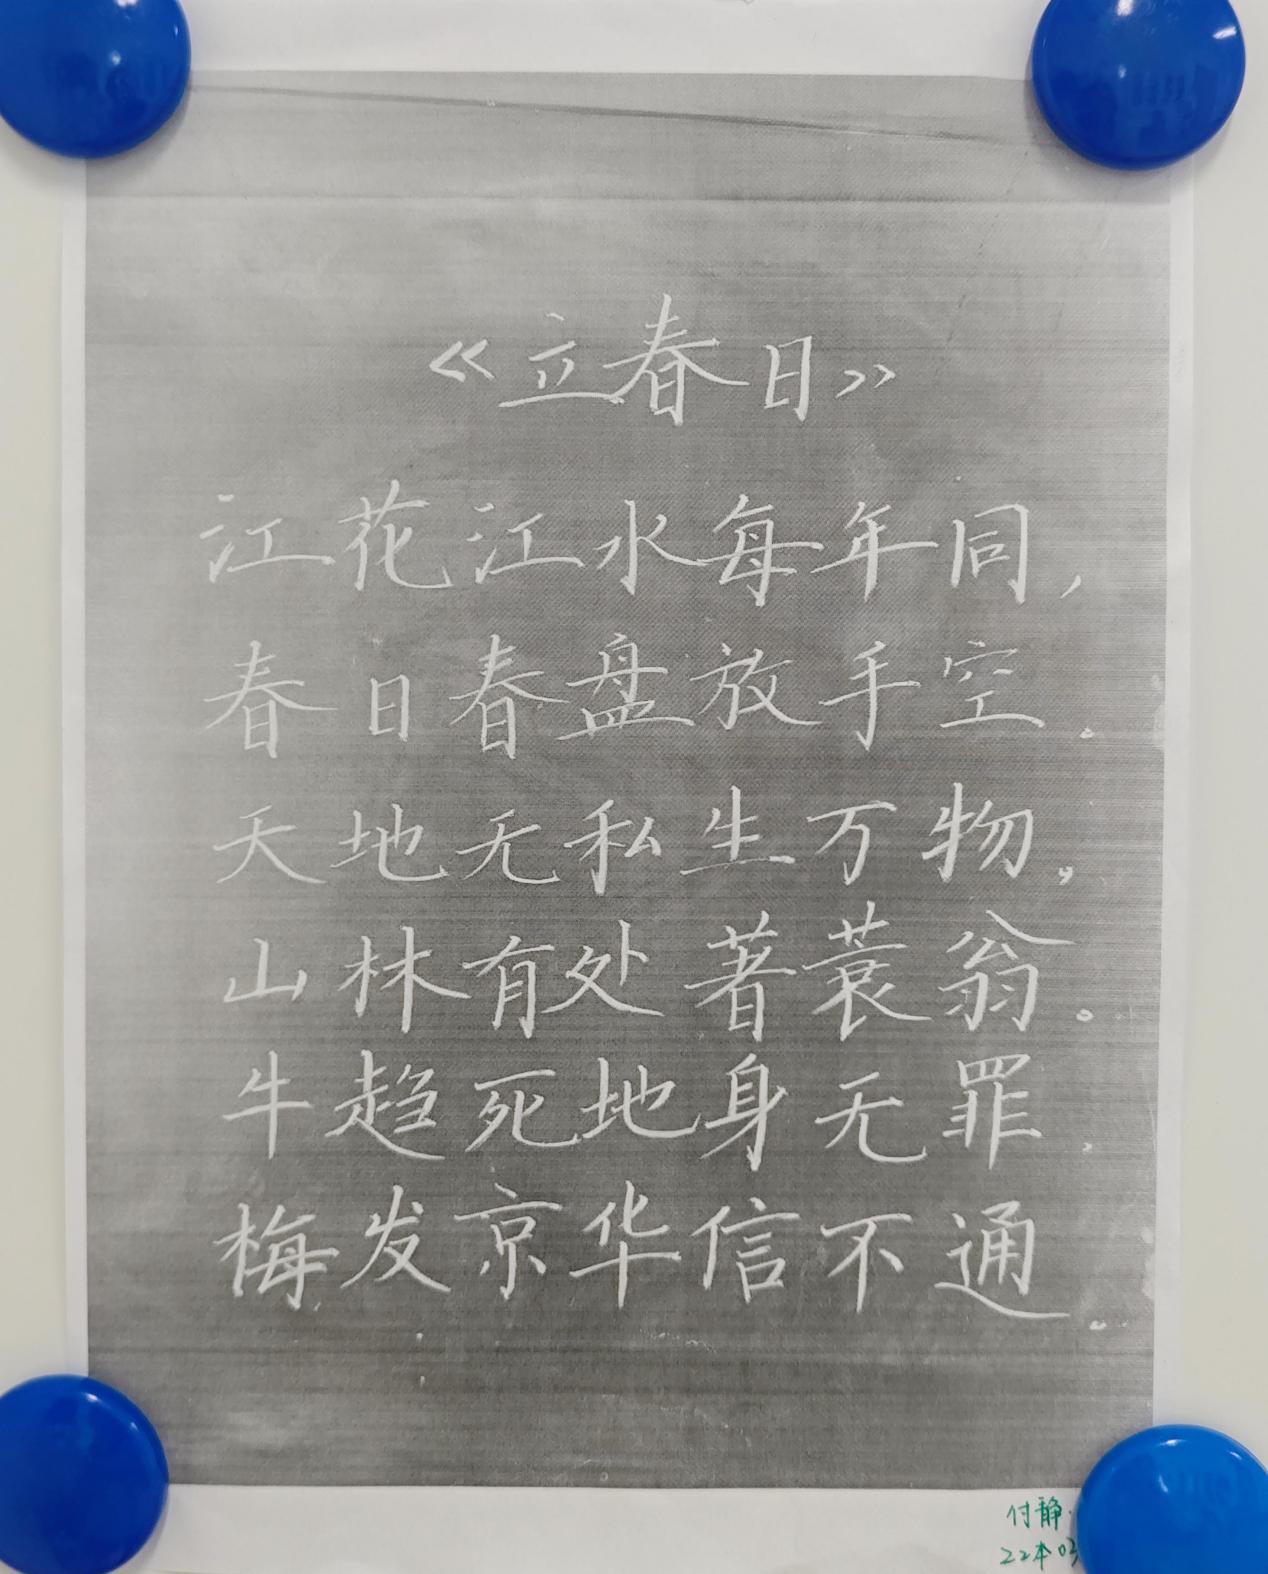 《立春日》
江花江水每年同，
春日春盘放手空．
天地无私生万物，
山林有处著蓑翁。
牛趋死地身无罪．
梅发京华信不通．
付静.
22本03